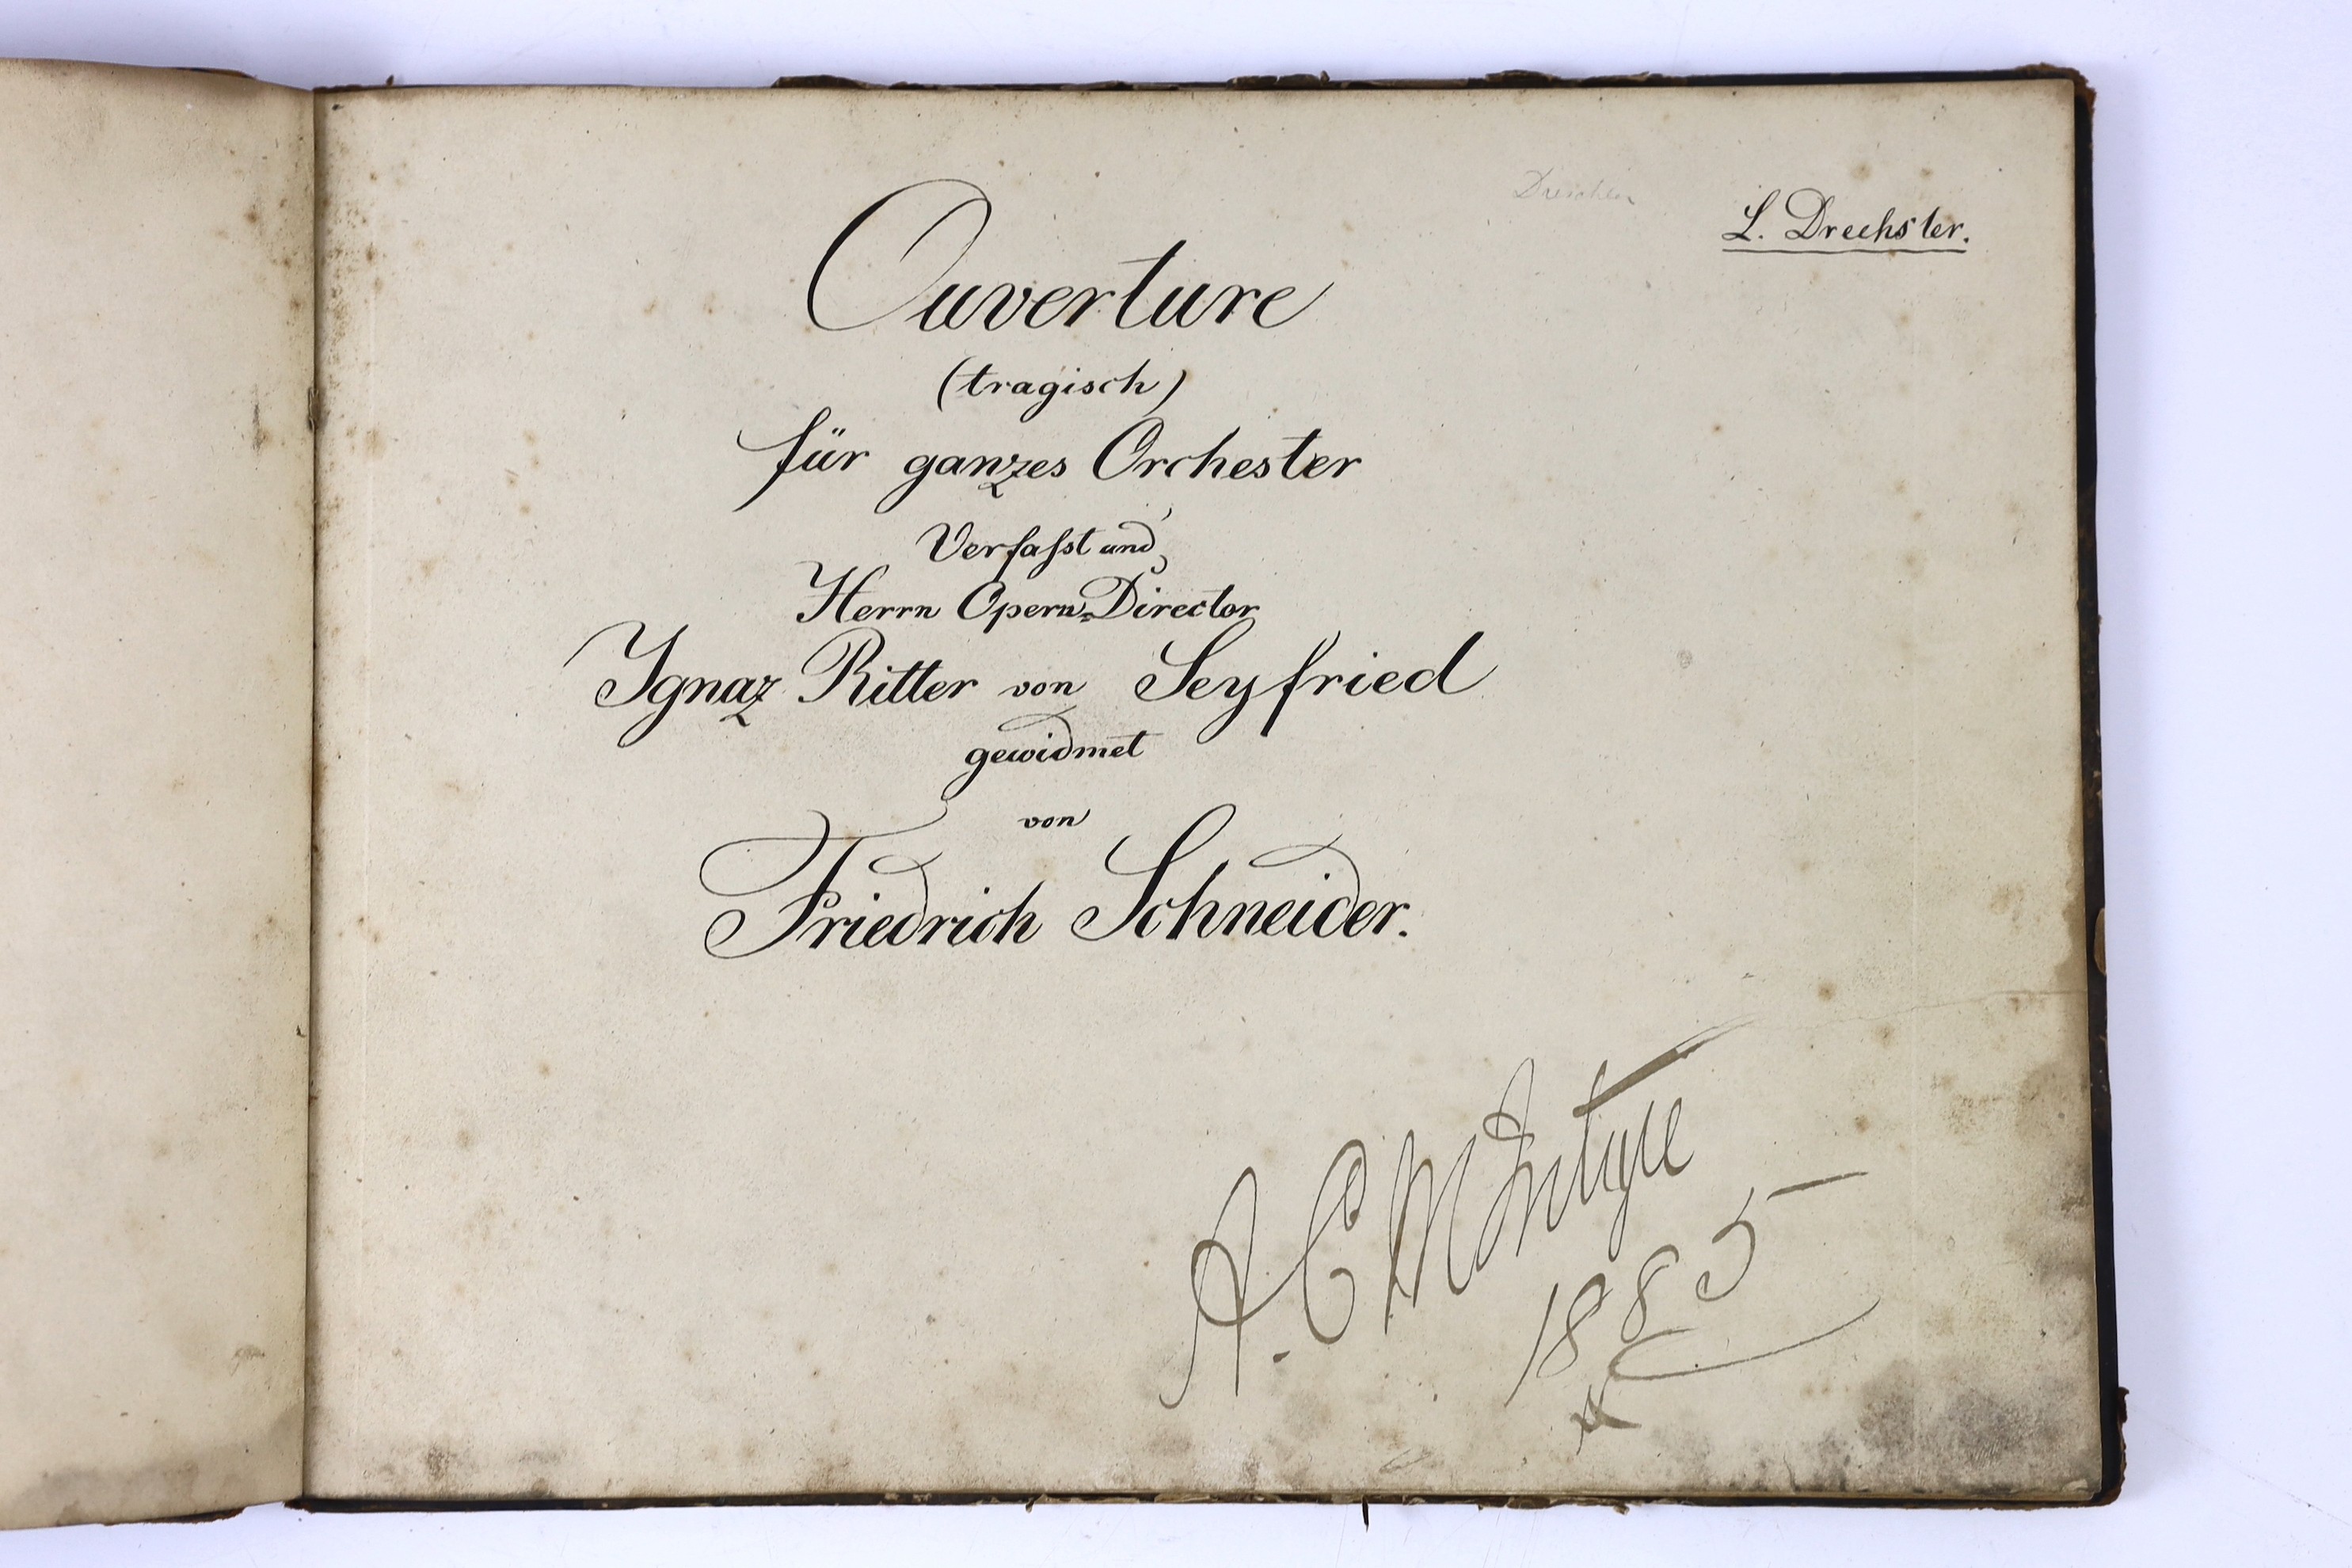 L. Drechsler.
Ouverture
(tragisch)
für ganzes Orchester
Verfaſst und
Herrn Opern-Director
Ignaz Ritter von Seyfried
gewidmet
von
Friedrich Schneider.
A. C McIntyre
1885